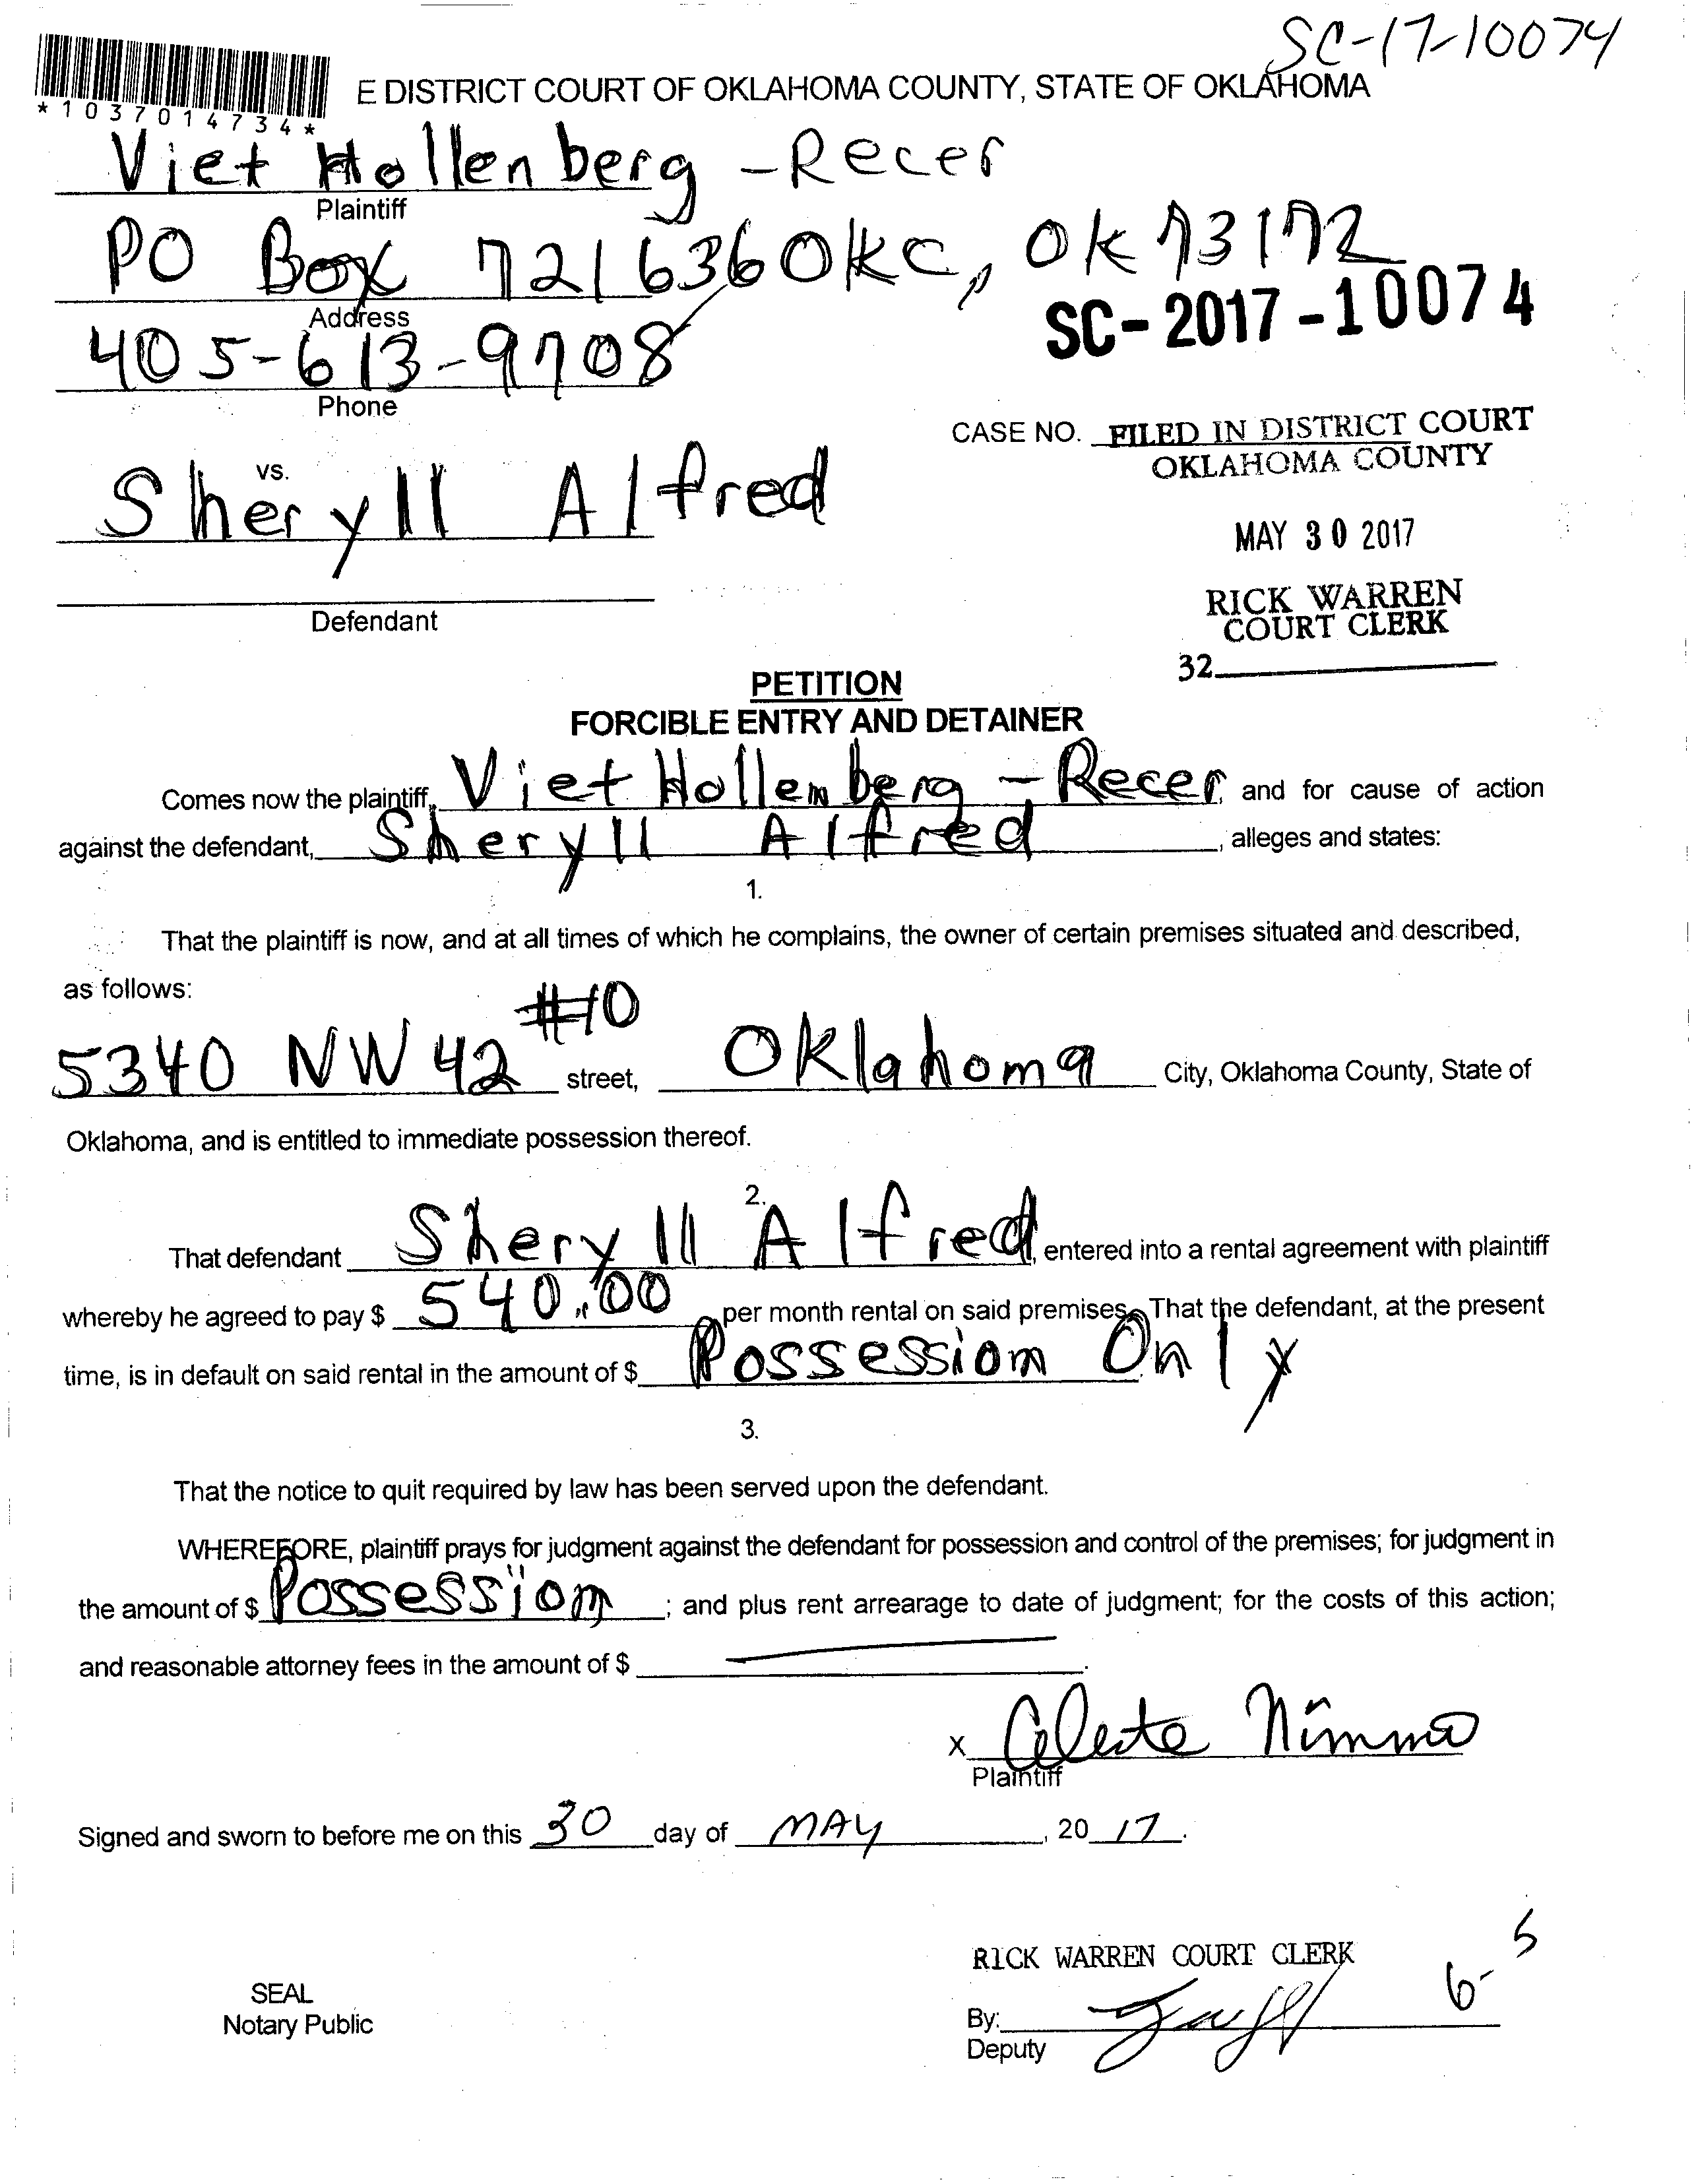 SC-17-10074
*1037014734*
E DISTRICT COURT OF OKLAHOMA COUNTY, STATE OF OKLAHOMA
Viet Hollenberg-Recer
Plaintiff
PO Box 721636 OKC, OK 73172
Address
SC-2017-10074
405-613-9708
Phone
CASE NO. FILED IN DISTRICT COURT
OKLAHOMA COUNTY
vs.
Sheryll Alfred
MAY 30 2017
RICK WARREN
COURT CLERK
Defendant
32
PETITION
FORCIBLE ENTRY AND DETAINER
Comes now the plaintiff, Viet Hollenberg-Recer, and for cause of action
against the defendant, Sheryll Alfred, alleges and states:
1.
That the plaintiff is now, and at all times of which he complains, the owner of certain premises situated and described,
as follows:
#10
5340 NW 42 street, Oklahoma City, Oklahoma County, State of
Oklahoma, and is entitled to immediate possession thereof.
2.
That defendant Sheryll Alfred, entered into a rental agreement with plaintiff
whereby he agreed to pay $ 540.00 per month rental on said premises. That the defendant, at the present
time, is in default on said rental in the amount of $ Possession Only
3.
That the notice to quit required by law has been served upon the defendant.
WHEREFORE, plaintiff prays for judgment against the defendant for possession and control of the premises; for judgment in
the amount of $ Possession; and plus rent arrearage to date of judgment; for the costs of this action;
and reasonable attorney fees in the amount of $ .
x Celeste Nimmo
Plaintiff
Signed and sworn to before me on this 30 day of MAY, 20 17.
RICK WARREN COURT CLERK
6-5
SEAL
Notary Public
By:
Deputy